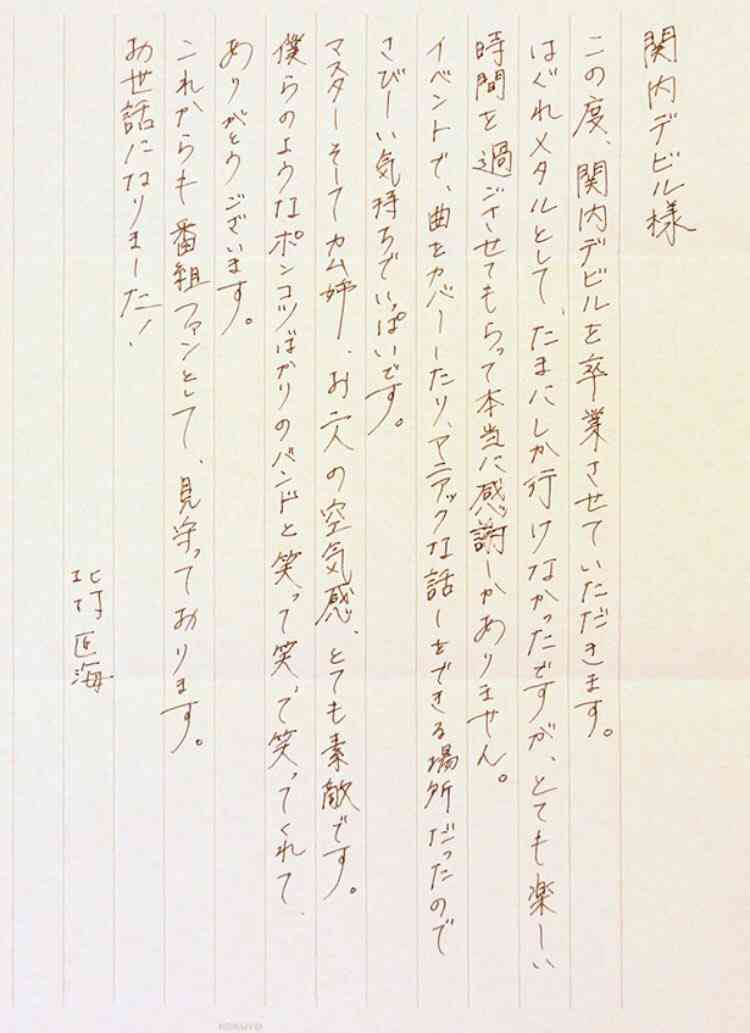 関内デビル様
この度、関内デビルを卒業させていただきます。
はぐれメタルとして、たまにしか行けなかったですが、とても楽しい
時間を過ごさせてもらって本当に感謝しかありません。
イベントで、曲をカバーしたり、マニアックな話しをできる場所だったので
さびしい気持ちでいっぱいです。
マスターそしてカム姉、お二人の空気感、とても素敵です。
僕らのようなポンコツばかりのバンドと笑って笑って笑ってくれて、
ありがとうございます。
これからも番組ファンとして、見守っております。
お世話になりました!
北村匠海
KOKUYO